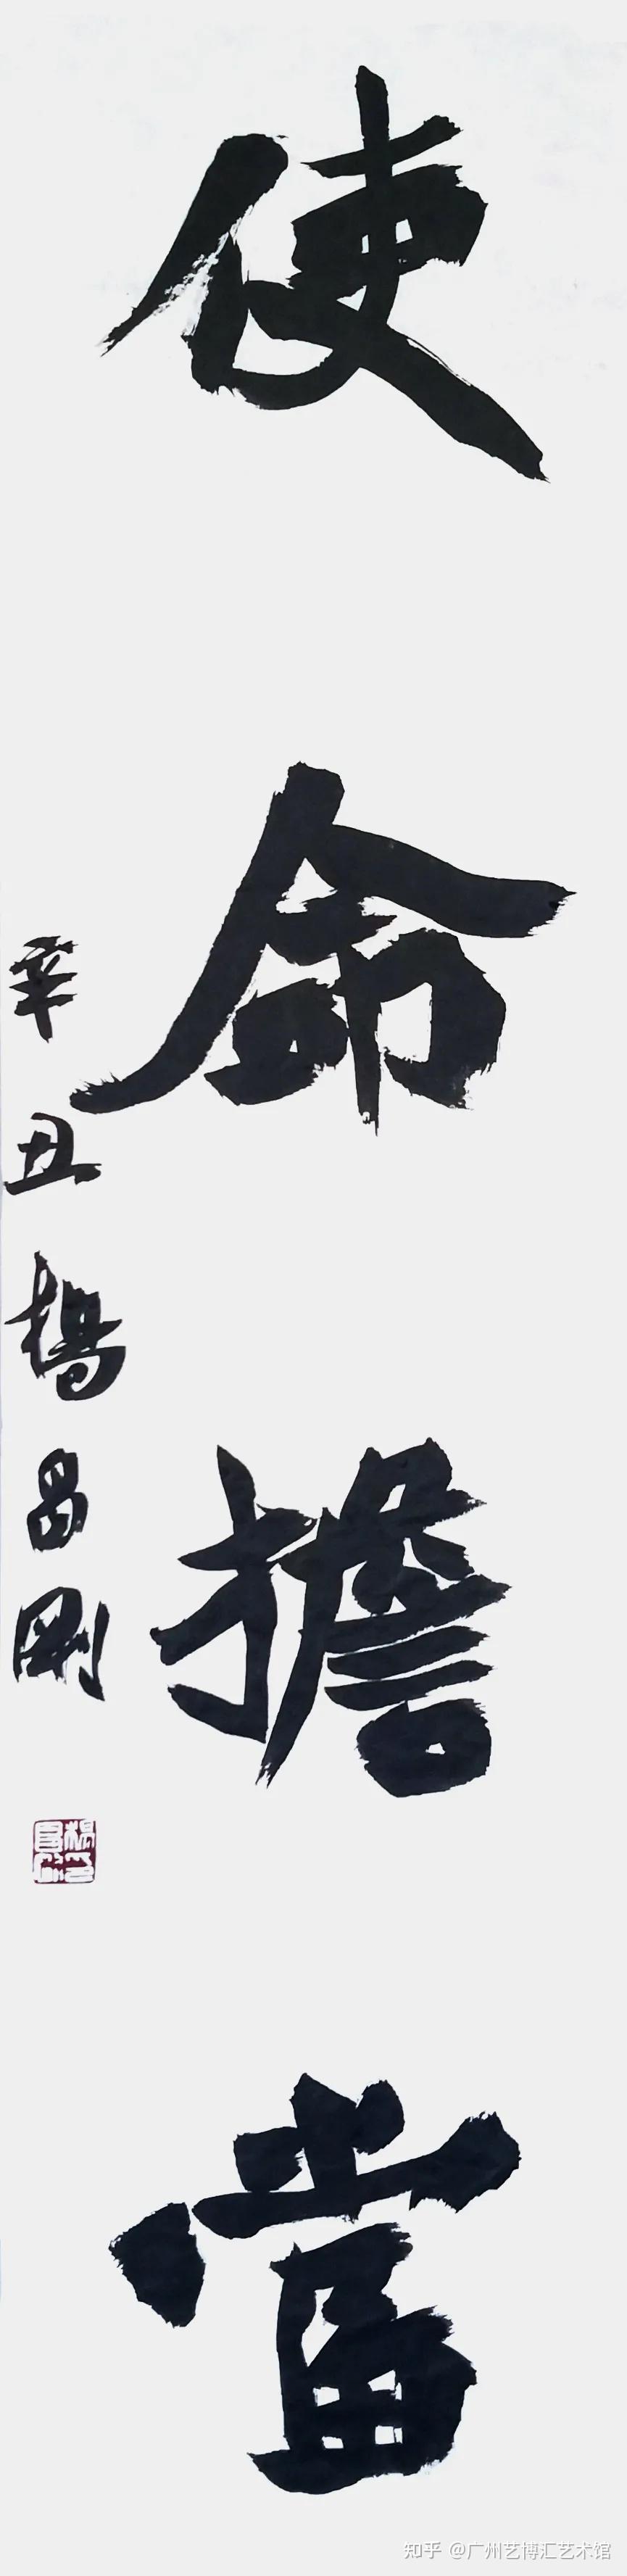 使命擔當
辛丑楊昌剛
知乎 @广州艺博汇艺术馆